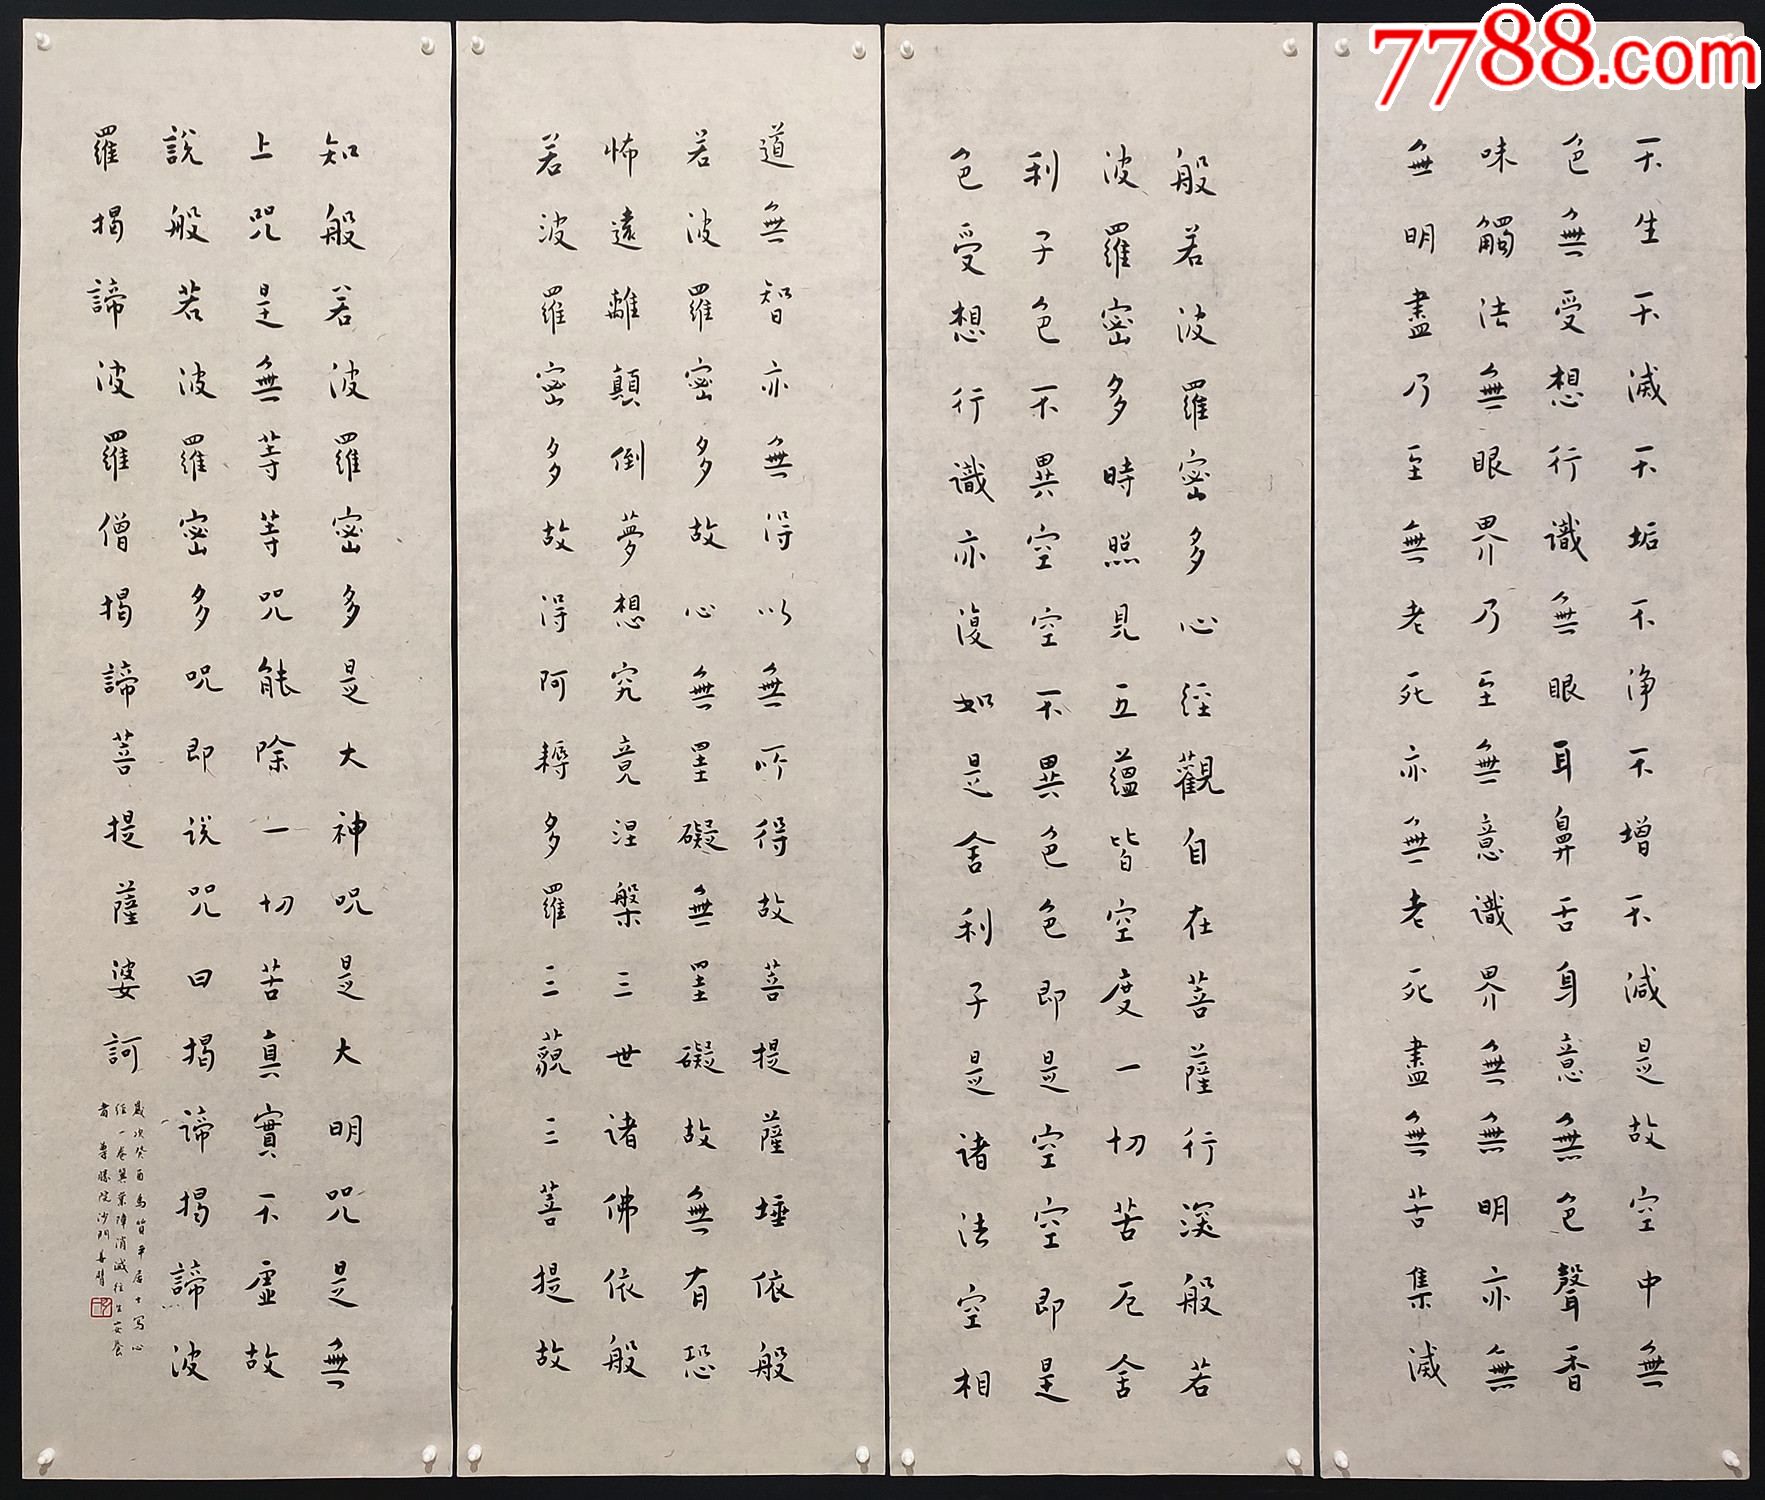 7788.com
不生不滅不垢不净不增不減是故空中無
色無受想行識無眼耳鼻舌身意無色聲香
味觸法無眼界乃至無意識界無無明亦無
無明盡乃至無老死亦無老死盡無苦集滅
般若波羅密多心經觀自在菩薩行深般若
波羅密多時照見五蘊皆空度一切苦厄舍
利子色不異空空不異色色即是空空即是
色受想行識亦復如是舍利子是諸法空相
道無智亦無得以無所得故菩提薩埵依般
若波羅密多故心無罣礙無罣礙故無有恐
怖遠離顛倒夢想究竟涅槃三世諸佛依般
若波羅密多故得阿耨多羅三藐三菩提故
知般若波羅密多是大神咒是大明咒是無
上咒是無等等咒能除一切苦真實不虛故
說般若波羅密多咒即説咒曰揭諦揭諦波
羅揭諦波羅僧揭諦菩提薩婆訶
歲次癸酉為質平居士寫心
經一卷冀業障消滅往生安養
者 尊勝院沙門善臂